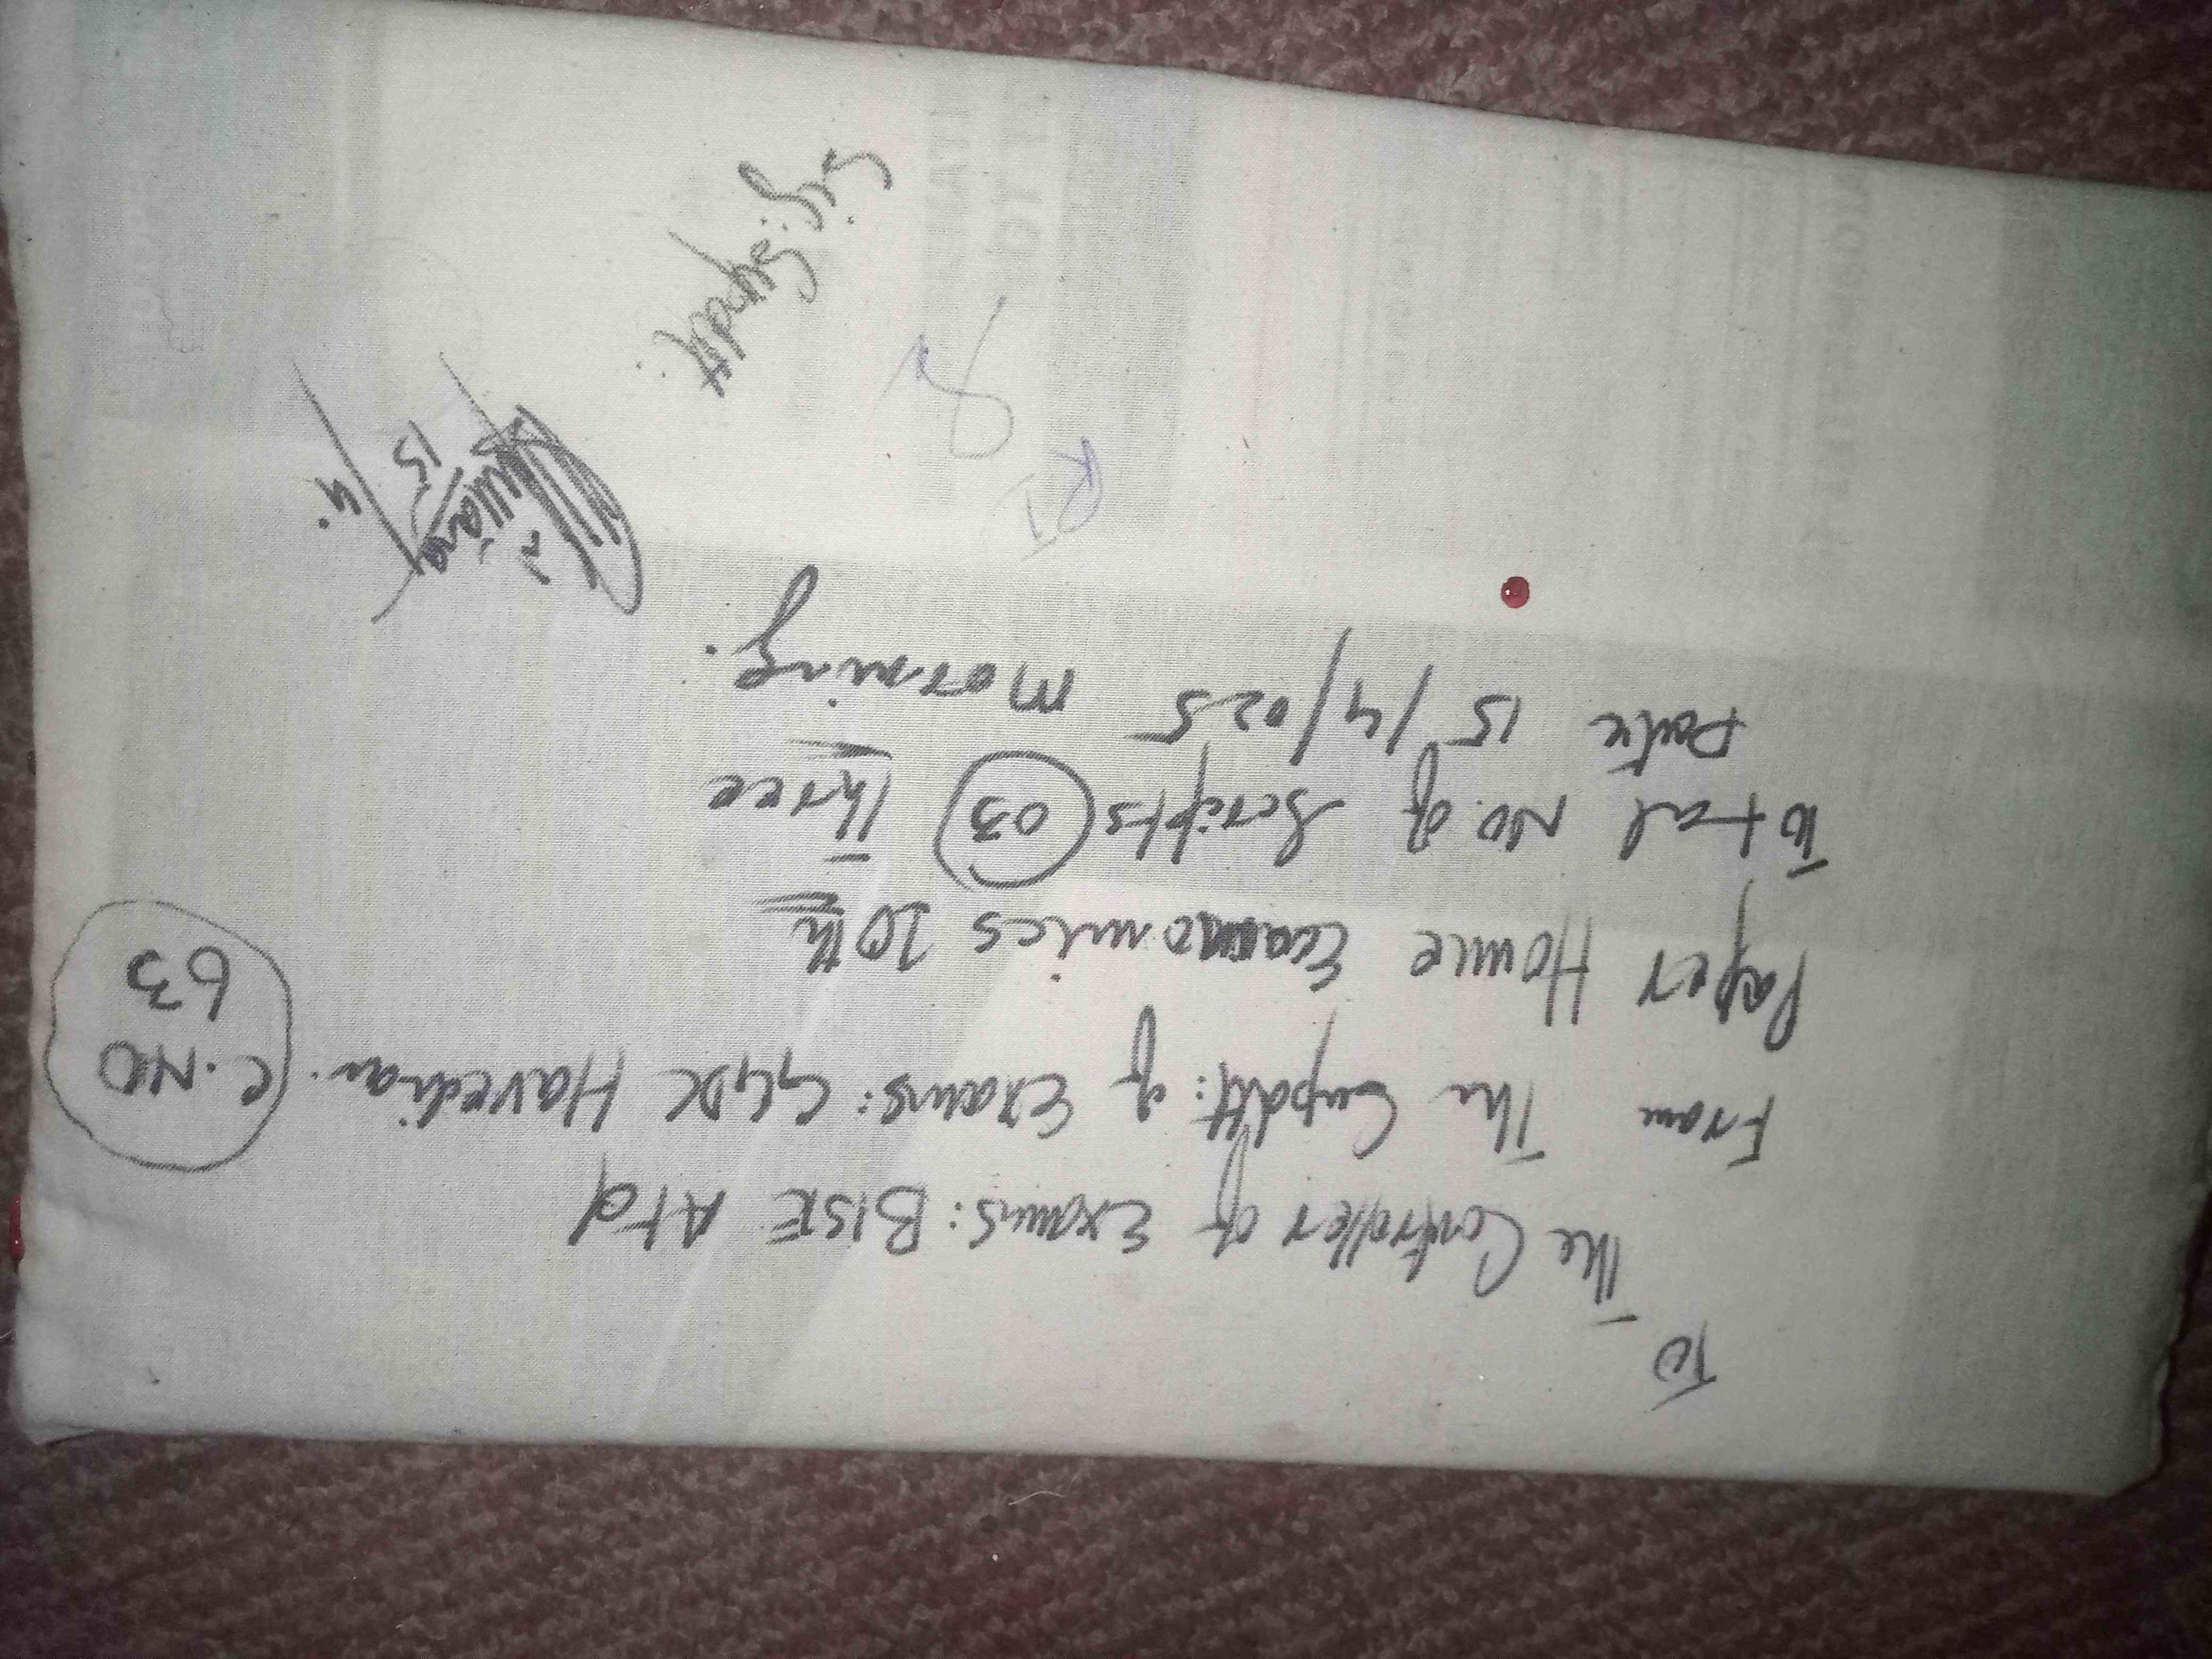 To
The Controller of Exams: BISE Atd
From The Supdtt: of Exams: GGHS Havelian.
C.NO
63
Paper Home Economics 10th
Total No. of Scripts 03 Three
Date 15/4/025 Morning.
R I
Sig: Supdtt:
15/4